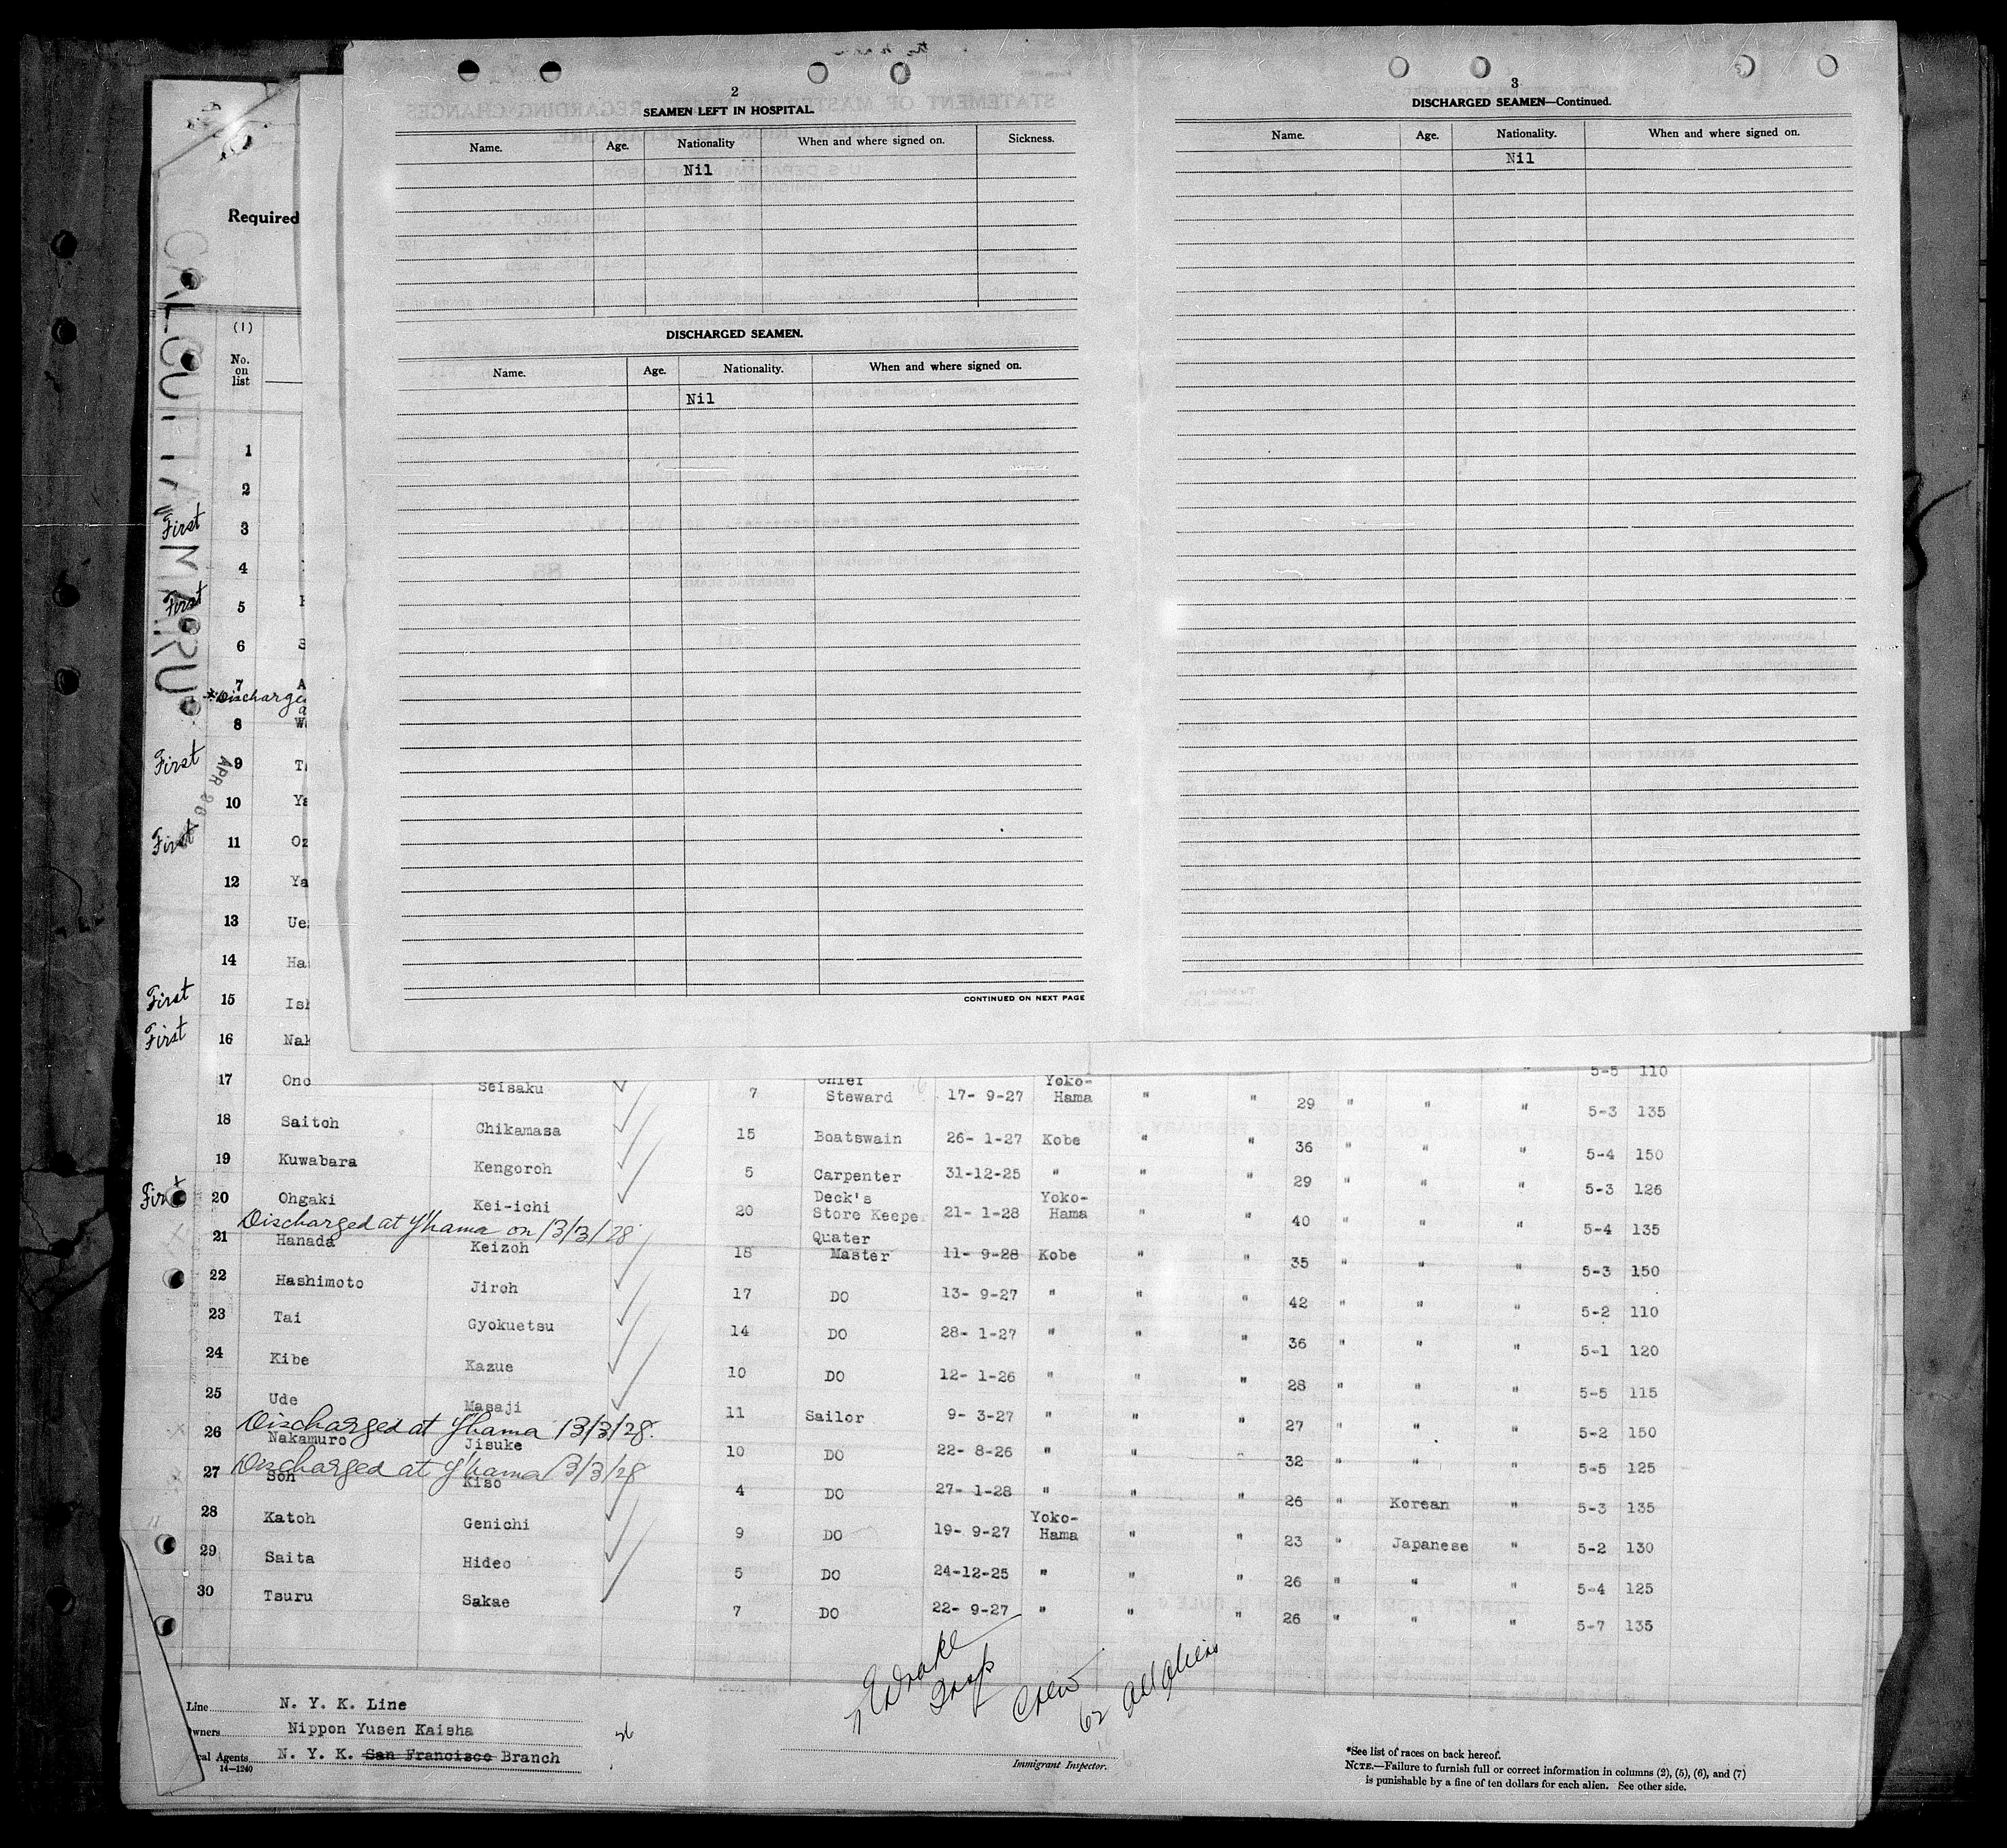 2
SEAMEN LEFT IN HOSPITAL.
Name. Age. Nationality When and where signed on. Sickness.
Nil
DISCHARGED SEAMEN.
Name. Age. Nationality. When and where signed on.
Nil
CONTINUED ON NEXT PAGE
3
DISCHARGED SEAMEN—Continued.
Name. Age. Nationality. When and where signed on.
Nil
Required
CALCUTTA MARU
(1)
No.
on
list
1
2
First 3
4
First 5
6 S
7 A
*Discharge
8 W
First 9 T
APR 28
10 Ya
First 11 Oz
12 Ya
13 Ue
14 Ha
First 15 Ish
First 16 Nak
5-5 110
17 Ono Seisaku 7 Chief Steward 17- 9-27 Yoko-Hama " " 29 " " " 5-3 135
18 Saitoh Chikamasa 15 Boatswain 26- 1-27 Kobe " " 36 " " " 5-4 150
19 Kuwabara Kengoroh 5 Carpenter 31-12-25 " " " 29 " " " 5-3 126
First 20 Ohgaki Kei-ichi 20 Deck's Store Keeper 21- 1-28 Yoko-Hama " " 40 " " " 5-4 135
Discharged at Y'hama on 13/3/28
21 Hanada Keizoh 18 Quater Master 11- 9-28 Kobe " " 35 " " " 5-3 150
22 Hashimoto Jiroh 17 DO 13- 9-27 " " " 42 " " " 5-2 110
23 Tai Gyokuetsu 14 DO 28- 1-27 " " " 36 " " " 5-1 120
24 Kibe Kazue 10 DO 12- 1-26 " " " 28 " " " 5-5 115
25 Ude Masaji 11 Sailor 9- 3-27 " " " 27 " " " 5-2 150
Discharged at Y'hama 13/3/28.
26 Nakamuro Jisuke 10 DO 22- 8-26 " " " 32 " " " 5-5 125
Discharged at Y'hama 13/3/28
27 Son Kiso 4 DO 27- 1-28 " " " 26 " Korean " 5-3 135
28 Katoh Genichi 9 DO 19- 9-27 Yoko-Hama " " 23 " Japanese " 5-2 130
29 Saita Hideo 5 DO 24-12-25 " " " 26 " " " 5-4 125
30 Tsuru Sakae 7 DO 22- 9-27 " " " 26 " " " 5-7 135
Line N. Y. K. Line
Owners Nippon Yusen Kaisha
cal Agents N. Y. K. San Francisco Branch
14—1240
Crew
62 all aliens
Immigrant Inspector.
*See list of races on back hereof.
NOTE.—Failure to furnish full or correct information in columns (2), (5), (6), and (7)
is punishable by a fine of ten dollars for each alien. See other side.